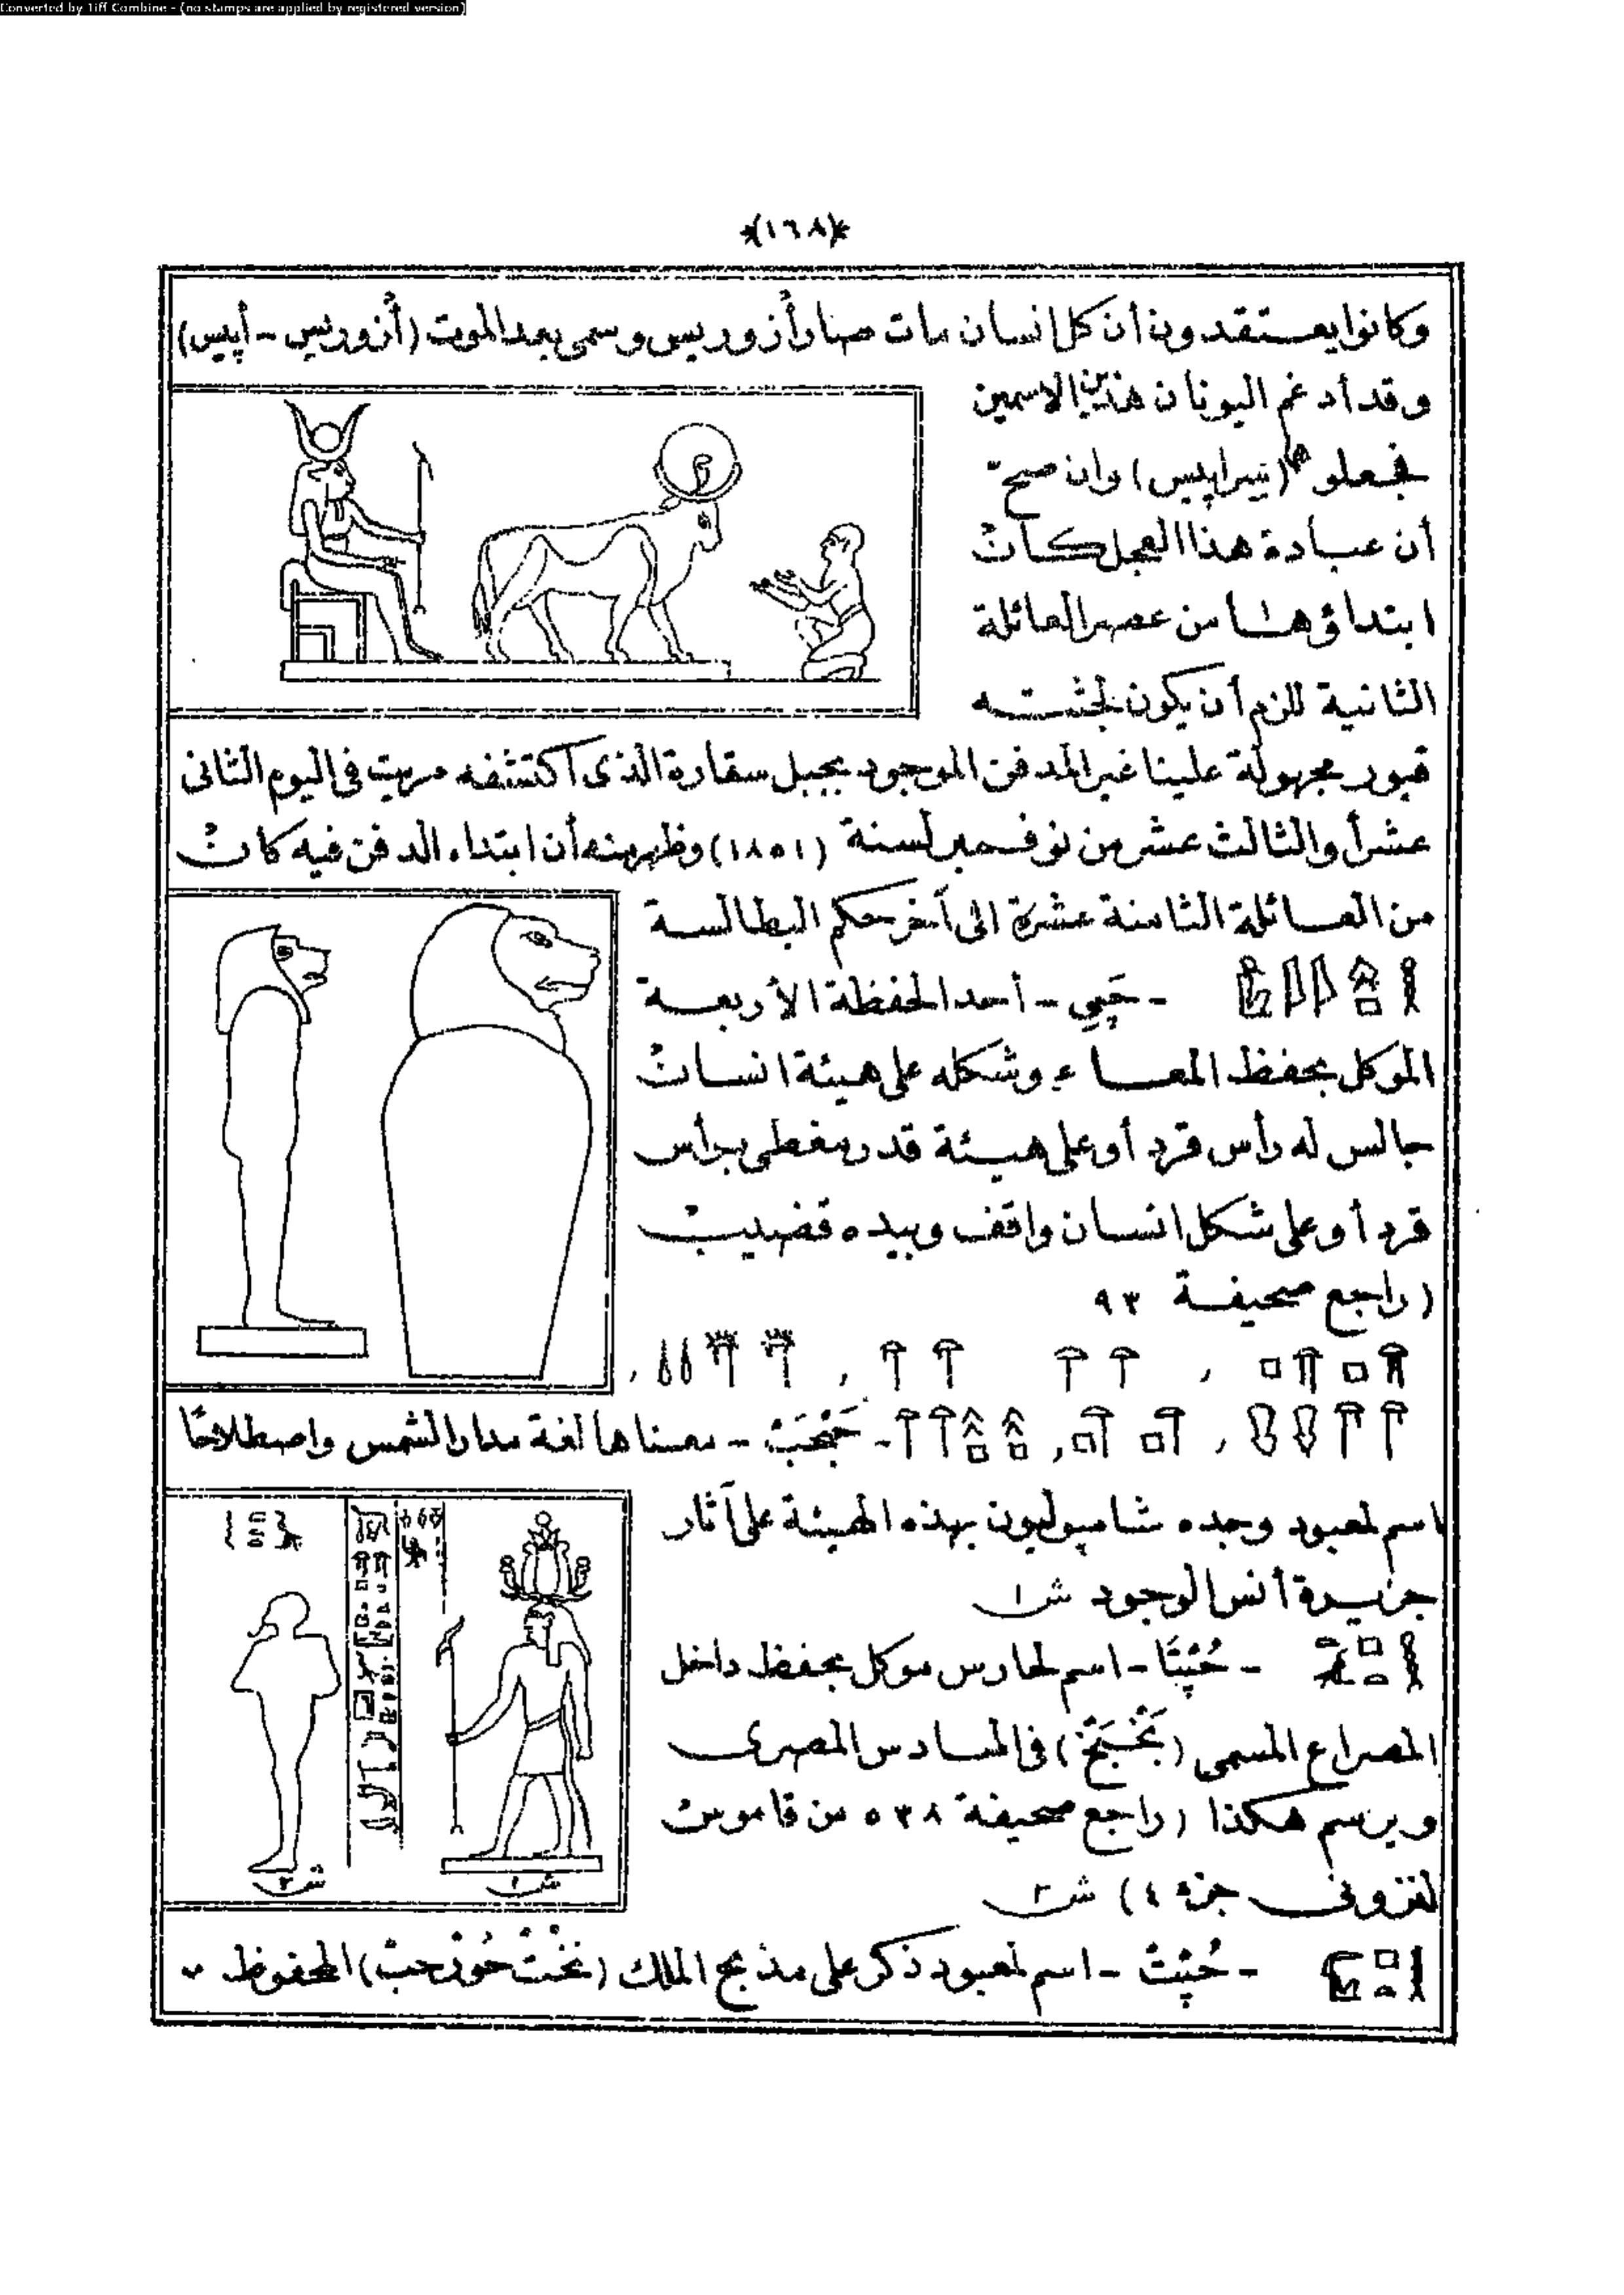 Converted by Tiff Combine - (no stamps are applied by registered version)
*(١٦٨)*
وكانوا يعتقدون أن كل انسان مات صار أزوريس وسمى بعد الموت (أزوريس - أپيس)
وقد أدغم اليونان هذين الاسمين
فجعلوهما (سيراپيس) وان صح
أن عبادة هذا العجل كان
ابتداؤها من عصر العائلة
الثانية للزم أن يكون لجثته
قبور مجهولة علينا غير المدفن الموجود بجبل سقارة الذى اكتشفه مريت فى اليوم الثانى
عشر أو الثالث عشر من نوفمبر لسنة (١٨٥١) وظهر منه أن ابتداء الدفن فيه كان
من العائلة الثامنة عشرة الى آخر حكم البطالسة
- حَپِي - أحد الحفظة الأربعة
الموكل بحفظ المعاء وشكله على هيئة انسان
جالس له رأس قرد أو على هيئة قدر مغطى برأس
قرد أو على شكل انسان واقف وبيده قضيب
(راجع صحيفة ٩٣
- حَبْحَبْ - معناها لغة مدار الشمس واصطلاحًا
اسم لمعبود وجده شامپوليون بهذه الهيئة على آثار
جزيرة أنس الوجود ش ١
- حُپِتَا - اسم لحارس موكل بحفظ داخل
المصراع المسمى فى السادس المصرى
ويرسم هكذا (راجع صحيفة ٥٣٨ من قاموس
لنزونى جزء ٤) ش ٢
ش ١
ش ٢
- حُپِتْ - اسم لمعبود ذكر على مذبح الملك (نَخْتْ حُورْحِبْ) المحفوظ